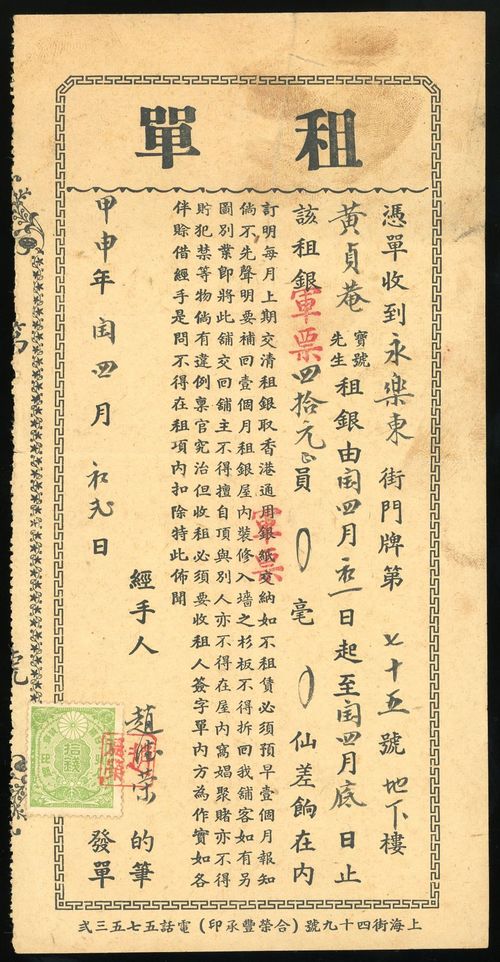 租單
憑單收到永樂東街門牌第七十五號地下樓
黃貞菴寶號先生租銀由閏四月初一日起至閏四月底日止
該租銀軍票四拾元正員0毫0仙差餉在內
訂明每月上期交清租銀取香港通用銀紙交納如不租賃必須預早壹個月報知
軍票
倘不先聲明要補回壹個月租銀屋內裝修入墻之杉板不得折回我舖客如有另
圖別業即將此舖交回舖主不得擅自頂與別人亦不得在屋內窩娼聚賭亦不得
貯犯禁等物倘有違例稟官究治但收租必須要收租人簽字單內方為作實如各
伴賒借經手是問不得在租項內扣除特此佈聞
經手人趙榮的筆
甲申年閏四月初九日
發單
拾錢
上海街四十九號(合榮豐承印)電話五七五三弍